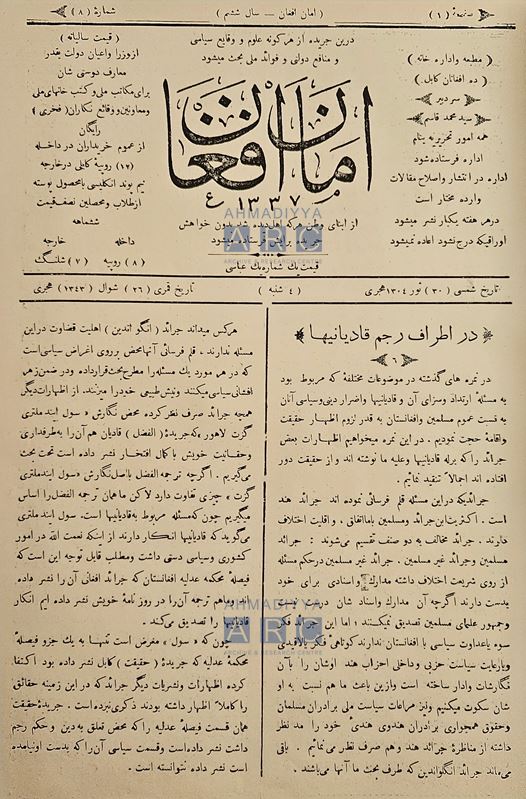 صفحهٔ (۱)
(امان افغان — سال ششم)
شمارهٔ (۸)
(مطبعه واداره خانه)
(ده افغانان کابل.)
سر دبیر
سید محمد قاسم
همه امور تحریریه بنام
اداره فرستاده شود
اداره در انتشار واصلاح مقالات
وارده مختار است
در هر هفته یکبار نشر میشود
اوراقیکه درج نشود اعاده نمیشود
درین جریده از هر گونه علوم و وقایع سیاسی
و منافع دولتی و فوائد ملی بحث میشود
امان افغان
۱۳۳۷
از ابنای وطن هر که اهل دیده شد بدون خواهش
جریده برایش فرستاده میشود
قیمت یک شماره یک عباسی
(قیمت سالیانه)
از وزرا واعیان دولت بقدر
معارف دوستی شان
برای مکاتب ملی وکتب خانهای ملی
ومعاونین ووقائع نگاران (فخری)
رایگان
از عموم خریداران در داخله
(۱۲) روپیهٔ کابلی در خارجه
نیم پوند انگلیسی بامحصول پوسته
از طلاب ومحصلین نصف قیمت
ششماهه
داخله خارجه
(۸) روپیه (۷) شلنگ
AHMADIYYA
ARC
ARCHIVE & RESEARCH CENTRE
تاریخ شمسی (۳۰) ثور ۱۳۰۴ هجری
(۴ شنبه)
تاریخ قمری (۲۶) شوال (۱۳۴۳) هجری
در اطراف رجم قادیانیها
۶
در نمره های گذشته در موضوعات مختلفهٔ که مربوط بود
به مسئلهٔ ارتداد وسزای آن و قادیانیها واضرار دینی وسیاسی آنان
به نسبت عموم مسلمین وافغانستان به قدر لزوم اظهار حقیقت
واقامهٔ حجت نمودیم. در این نمره میخواهیم اظهارات بعض
جرائد را که برله قادیانیها وعلیه ما نوشته اند و از حقیقت دور
افتاده اند اجمالاً تنقید نمائیم.
جرائدیکه در این مسئله قلم فرسائی نموده اند جرائد هند
است. اکثریت این جرائد ومسلمین باما اتفاق، واقلیت اختلاف
دارند. جرائد مخالف به دو صنف تقسیم می شوند: جرائد
مسلمین وجرائد غیر مسلمین. جرائد غیر مسلمین در حکم مسئله
از روی شریعت اختلاف داشته مدارک واسنادی برای خود
بدست دارند اگرچه آن مدارک واسناد شان درست نیست
وجمهور علمای مسلمین تصدیق نمیکنند؛ اما این جرائد فکر
سوء یاعداوت سیاسی با افغانستان ندارند کوتاهی فکر بالاقیدی
وبارعایت سیاست حزبی وداخلی احزاب هند اوشان را باآن
نگارشات وادار ساخته است وازین باعث ما هم نسبت به او
شان سکوت میکنیم ونیز مراعات سیاست ملی برادران مسلمان
وحقوق همجواری برادران هندوی هندیٔ خود را مد نظر
داشته از مناظرهٔ جرائد هند وهم صرف نظر می نمائیم. باقی
می ماند جرائد انگلواندین که طرف بحث ما آنها می باشند.
هر کس میداند جرائد (انگلو اندین) اهلیت قضاوت در این
مسئله ندارند. قلم فرسائی آنها محض بر روی اغراض سیاسی است
که در هر مورد یک مسئله را مطرح بحث قرار داده ودر ضمن زهر
افشانی سیاسی میکنند ونیش طبیعی خود را میزنند. از اظهارات دیگر
همچه جرائد صرف نظر کرده محض نگارش « سول ایند ملتری
گزت لاهور » که جریدهٔ (الفضل) قادیان هم آن را به طرفداری
وحقانیت خویش با کمال افتخار نشر داده است تحت بحث
می گیریم. اگرچه ترجمه الفضل بااصل نگارش « سول ایند ملتری
گزت » چیزی تفاوت دارد لاکن ما همان ترجمه الفضل را اساس
میگیریم چون که مسئله مربوط به قادیانیها است. سول ایند ملتری
می گوید که قادیانیها انکار دارند از اینکه نعمت الله در امور
کشوری وسیاسی دستی داشت ومطلب قابل توجه این است که
فیصلهٔ محکمه عدلیه افغانستان که جرائد افغان آن را نشر داده
اند وماهم ترجمه آن را در روز نامهٔ خویش نشر داده ایم انکار
قادیانها را تصدیق می کند.
چون که « سول » مغرض است تنها به یک جزو فیصلهٔ
محکمهٔ عدلیه که جریدهٔ (حقیقت) کابل نشر داده بود اکتفا
کرده اظهارات ونشریات دیگر جرائد که در این زمینه حقائق
را کاملاً اظهار داشته بودند ذکری نبرده است. جریدهٔ حقیقت
همان قسمت فیصلهٔ عدلیه را که محض تعلق به دین وحکم رجم
داشت نشر داده است وقسمت سیاسی آن را که بدست او نیامده
است نشر داده نتوانسته است.